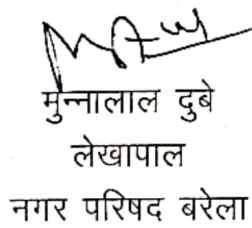 मुन्नालाल दुबे
लेखापाल
नगर परिषद बरेला